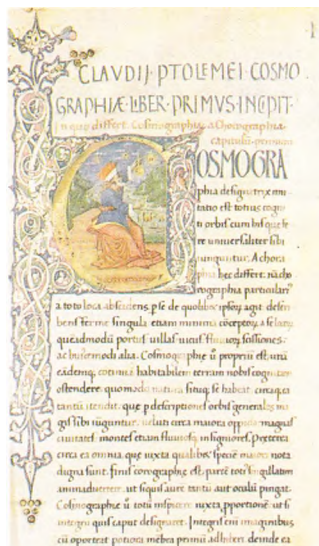 CLAVDIJ PTOLEMEI COSMO
GRAPHIÆ LIBER PRIMVS INCIPIT
In quo differt Cosmographia a Chorographia
Capitulum primum
COSMOGRA
phia designatrix imi
tatio est totius cogni
ti orbis cum his que fe
re universaliter sibi
iunguntur. A choro
graphia hec differt
corographia particulari
a toto loca abscidens p se de quolibet ipsoru agit describens
ferme singula etiam minima
portus villas vicos
ac huiusmodi alia. Cosmographie u propriu est una
eademq continua habitabilem terram nobis cognitam
ostendere quomodo natura situq se habeat
tantu itendit que p descriptiones orbis generales
gis sibi iunguntur veluti circa maiora oppida magnas
civitates montes etiam fluviosq insigniores preterea
circa ea omnia que iuxta qualibet specie maiori nota
digna sunt. finis corographie est parte totius singillatim
animadvertere ut siquis aure tantu aut oculu pingat.
Cosmographie u totu inspicere iuxta pportione ut si
integru quis caput designaret. Integris eni imaginibus
cu oporteat potiora mebra primu adhiberi deinde ea